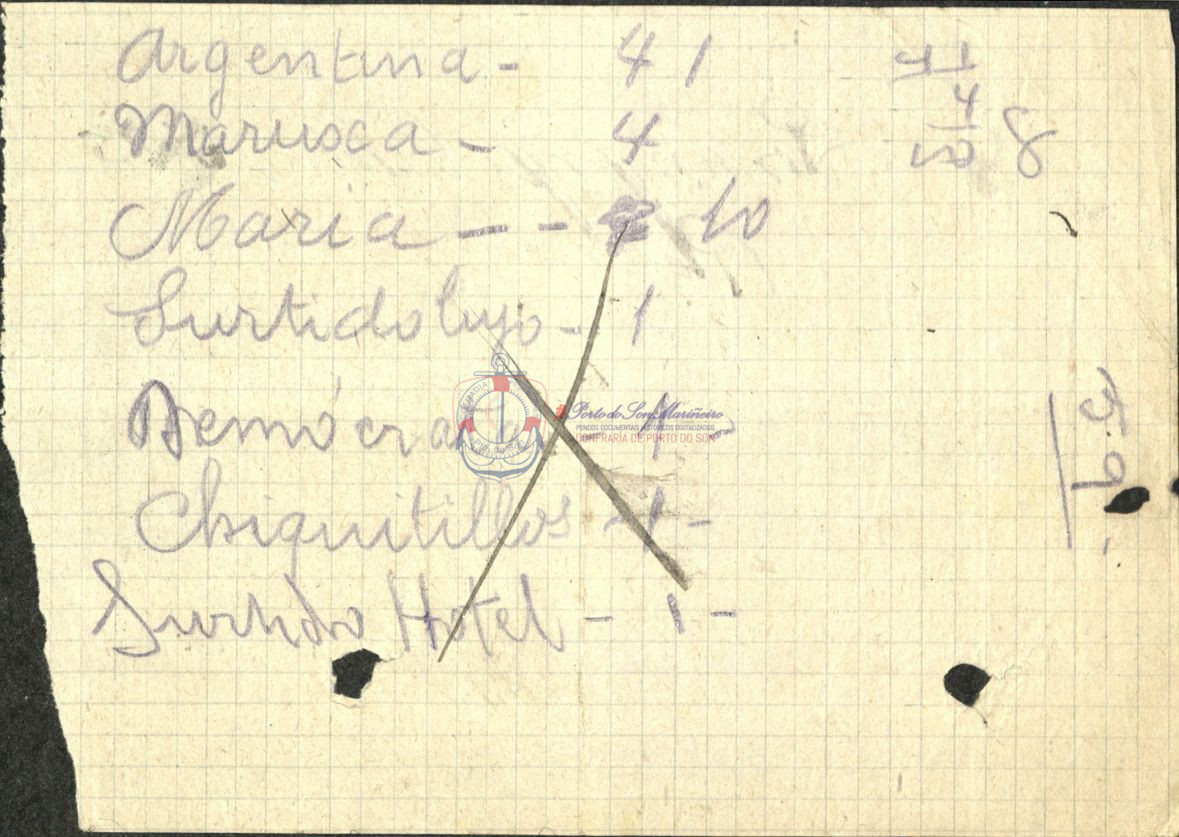 Argentina - 41
Marusca - 4
Maria - - 10
Surtido lujo - 1
Demócrata - 1 -
Chiquitillos - 1 -
Surtido Hotel - 1 -
4
8
Porto do Son Mariñeiro
FONDOS DOCUMENTAIS HISTÓRICOS DIXITALIZADOS
CONFRARÍA DE PORTO DO SON